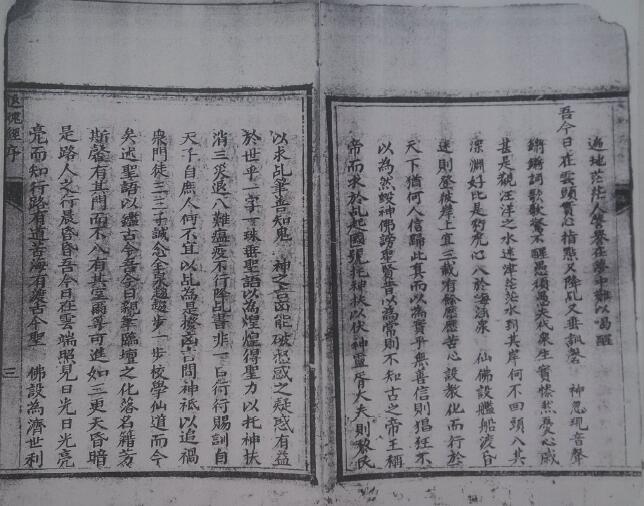 遍地茫茫人皆昏在夢中難以喝醒
吾今日在雲頭賣心指點又降乩又垂訊盤 神恩現音聲
鏘鏘詞歌歌驚不醒愚頑愚夫代衆生實憷然憂心戚
甚是觀汪洋之水迷津茫茫水到其岸何不回頭八其
深淵好比是豹虎心八於海滄泉 仙佛設艦船渡昏
迷則登彼岸上宜三載有餘歷歷苦心設教化而行於
天下猶何人信歸此真而以為實乎無善信則猖狂不
以為然毀神佛謗聖賢昔以為常則不知古之帝王稱
帝而求於乩起國號托神扶以伏神靈胥大夫則黎民
以求乩筆善知鬼 神之言函能破愁惑之疑惑有益
於世乎一字一珠垂聖語以為煌煌得聖力以托神扶
消三災退八難瘟疫不行降乩書非一旨行行賜訓自
天子自庶人何不宜以乩為是據函言問神祇以追禍
衆門徒三三子誠念全求趨趨步一步校學仙道而今
矣述聖語以鑑古今吾今日親筆臨壇之化落名籍芳
斯馨有其門而不入有其室爾等可進如三更天昏暗
是路人之行晨昏昏吾今日在雲端照見日光日光亮
亮而知行路有道苦海有渡古今聖 佛設為濟世利
經序
三